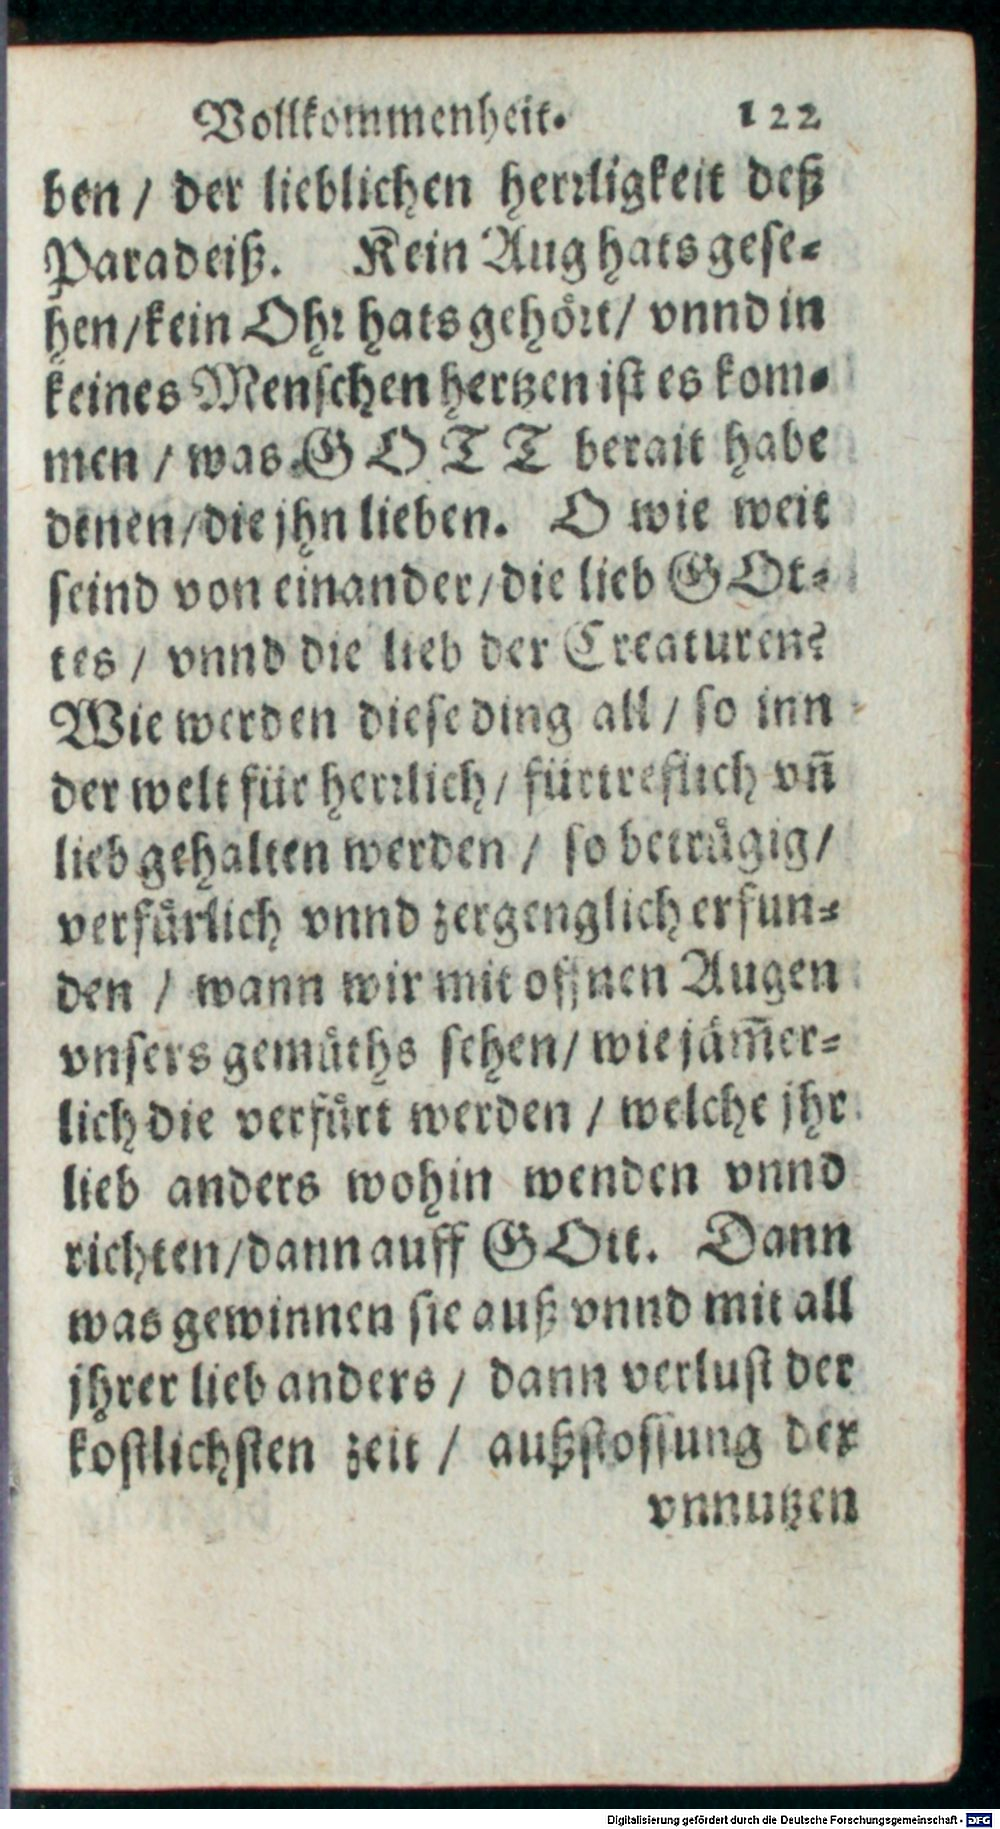 Vollkommenheit. 122
ben / der lieblichen herꝛligkeit deß
Paradeiß. Kein Aug hats gese-
hen/kein Ohꝛ hats gehöꝛt/ vnnd in
keines Menschen hertzen ist es kom-
men / was GOTT berait habe
denen/die jhn lieben. O wie weit
seind von einander/die lieb GOt-
tes / vnnd die lieb der Creaturen?
Wie werden diese ding all / so inn
der welt für herꝛlich/ fürtreflich vn̄
lieb gehalten werden / so betrůgig/
verfůrlich vnnd zergenglich erfun-
den / wann wir mit offnen Augen
vnsers gemůths sehen/ wie jäm̄er-
lich die verfůrt werden / welche jhr
lieb anders wohin wenden vnnd
richten/dann auff GOtt. Dann
was gewinnen sie auß vnnd mit all
jhrer lieb anders / dann verlust der
kostlichsten zeit / außstossung der
vnnutzen
Digitalisierung gefördert durch die Deutsche Forschungsgemeinschaft - DFG